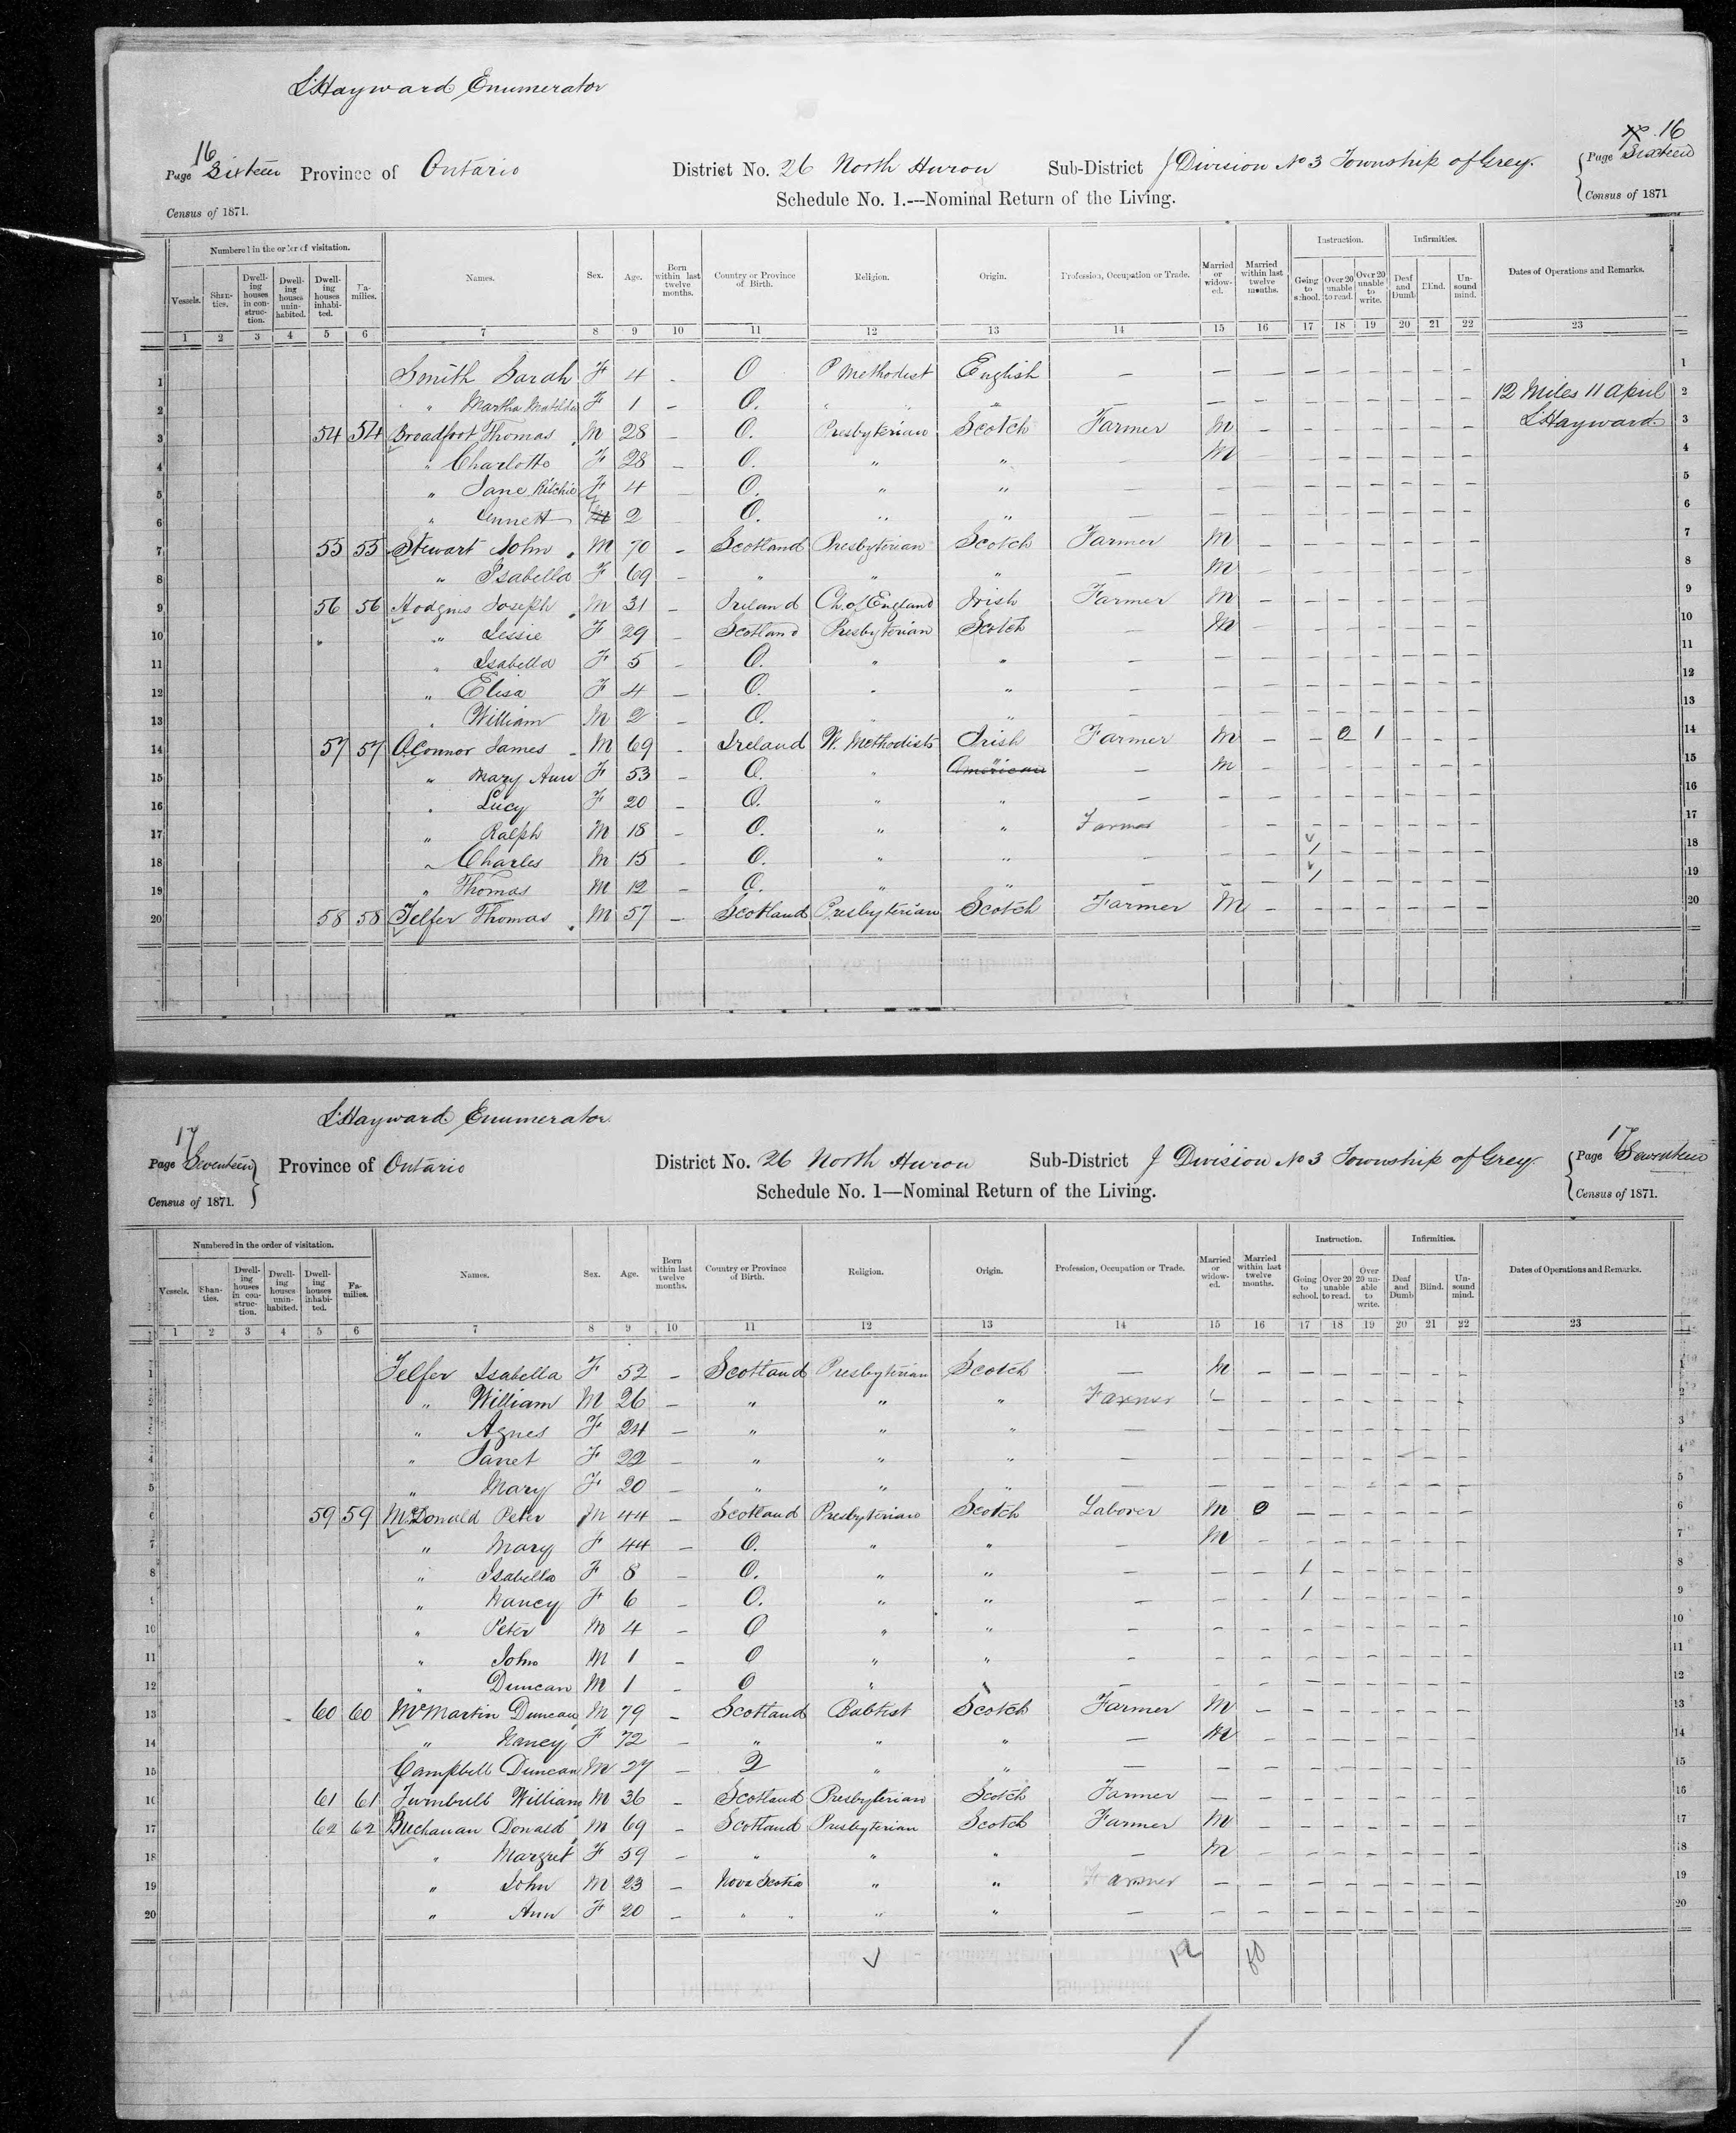 L Hayward Enumerator
16 16
Page Sixteen Province of Ontario District No. 26 North Huron Sub-District J Division No 3 Township of Grey. Page Sixteen
Census of 1871. Schedule No. 1.---Nominal Return of the Living. Census of 1871
Numbered in the order of visitation. Names. Sex. Age. Born within last twelve months. Country or Province of Birth. Religion. Origin. Profession, Occupation or Trade. Married or widowed. Married within last twelve months. Instruction. Infirmities. Dates of Operations and Remarks.
Vessels. Shanties. Dwelling houses in construction. Dwelling houses uninhabited. Dwelling houses inhabited. Families. Going to school. Over 20 unable to read. Over 20 unable to write. Deaf and Dumb Blind. Unsound mind.
1 2 3 4 5 6 7 8 9 10 11 12 13 14 15 16 17 18 19 20 21 22 23
1 Smith Sarah F 4 - O P Methodist English — — — — — — — — — 1
2 " Martha Matilda F 1 - O. " " " — — — — — — — — — 12 Miles 11 April 2
3 54 54 Broadfoot Thomas M 28 - O. Presbyterian Scotch Farmer M — — — — — — — L Hayward 3
4 " Charlotte F 28 - O. " " — M — — — — — — — 4
5 " Jane Ritchie F 4 - O. " " — — — — — — — — — 5
6 " Jennett F 2 - O. " " — — — — — — — — — 6
7 55 55 Stewart John M 70 - Scotland Presbyterian Scotch Farmer M — — — — — — — 7
8 " Isabella F 69 - " " " — M — — — — — — — 8
9 56 56 Hodgins Joseph M 31 - Ireland Ch. of England Irish Farmer M — — — — — — — 9
10 " " Jessie F 29 - Scotland Presbyterian Scotch — M — — — — — — — 10
11 " Isabella F 5 - O. " " — — — — — — — — — 11
12 " Elisa F 4 - O. " " — — — — — — — — — 12
13 " William M 2 - O. " " — — — — — — — — — 13
14 57 57 OConnor James M 69 - Ireland W. Methodists Irish Farmer M — — 0 1 — — — 14
15 " Mary Ann F 53 - O. " American — M — — — — — — — 15
16 " Lucy F 20 - O. " " — — — — — — — — — 16
17 " Ralph M 18 - O. " " Farmer — — — — — — — — 17
18 " Charles M 15 - O. " " — — — 1 — — — — — 18
19 " Thomas M 12 - O. " " — — — 1 — — — — — 19
20 58 58 Telfer Thomas M 57 - Scotland Presbyterian Scotch Farmer M — — — — — — — 20
L Hayward Enumerator.
17 17
Page Seventeen Province of Ontario District No. 26 North Huron Sub-District J Division No 3 Township of Grey. Page Seventeen
Census of 1871. Schedule No. 1—Nominal Return of the Living. Census of 1871.
Numbered in the order of visitation. Names. Sex. Age. Born within last twelve months. Country or Province of Birth. Religion. Origin. Profession, Occupation or Trade. Married or widowed. Married within last twelve months. Instruction. Infirmities. Dates of Operations and Remarks.
Vessels. Shanties. Dwelling houses in construction. Dwelling houses uninhabited. Dwelling houses inhabited. Families. Going to school. Over 20 unable to read. Over 20 unable to write. Deaf and Dumb Blind. Unsound mind.
1 2 3 4 5 6 7 8 9 10 11 12 13 14 15 16 17 18 19 20 21 22 23
1 Telfer Isabella F 52 - Scotland Presbyterian Scotch — M — — — — — — — 1
2 " William M 26 - " " " Farmer — — — — — — — — 2
3 " Agnes F 24 - " " " — — — — — — — — — 3
4 " Janet F 22 - " " " — — — — — — — — — 4
5 " Mary F 20 - " " " — — — — — — — — — 5
6 59 59 McDonald Peter M 44 - Scotland Presbyterian Scotch Laborer M 0 — — — — — — 6
7 " Mary F 44 - O. " " — M — — — — — — — 7
8 " Isabella F 8 - O. " " — — — 1 — — — — — 8
9 " Nancy F 6 - O. " " — — — 1 — — — — — 9
10 " Peter M 4 - O " " — — — — — — — — — 10
11 " John M 1 - O " " — — — — — — — — — 11
12 " Duncan M 1 - O " " — — — — — — — — — 12
13 60 60 McMartin Duncan M 79 - Scotland Babtist Scotch Farmer M — — — — — — — 13
14 " Nancy F 72 - " " " — M — — — — — — — 14
15 Campbell Duncan M 27 - Q " " — — — — — — — — — 15
16 61 61 Turnbull William M 36 - Scotland Presbyterian Scotch Farmer — — — — — — — — 16
17 62 62 Buchanan Donald M 69 - Scotland Presbyterian Scotch Farmer M — — — — — — — 17
18 " Margret F 59 - " " " — M — — — — — — — 18
19 " John M 23 - Nova Scotia " " Farmer — — — — — — — — 19
20 " Ann F 20 - " " " " — — — — — — — — — 20